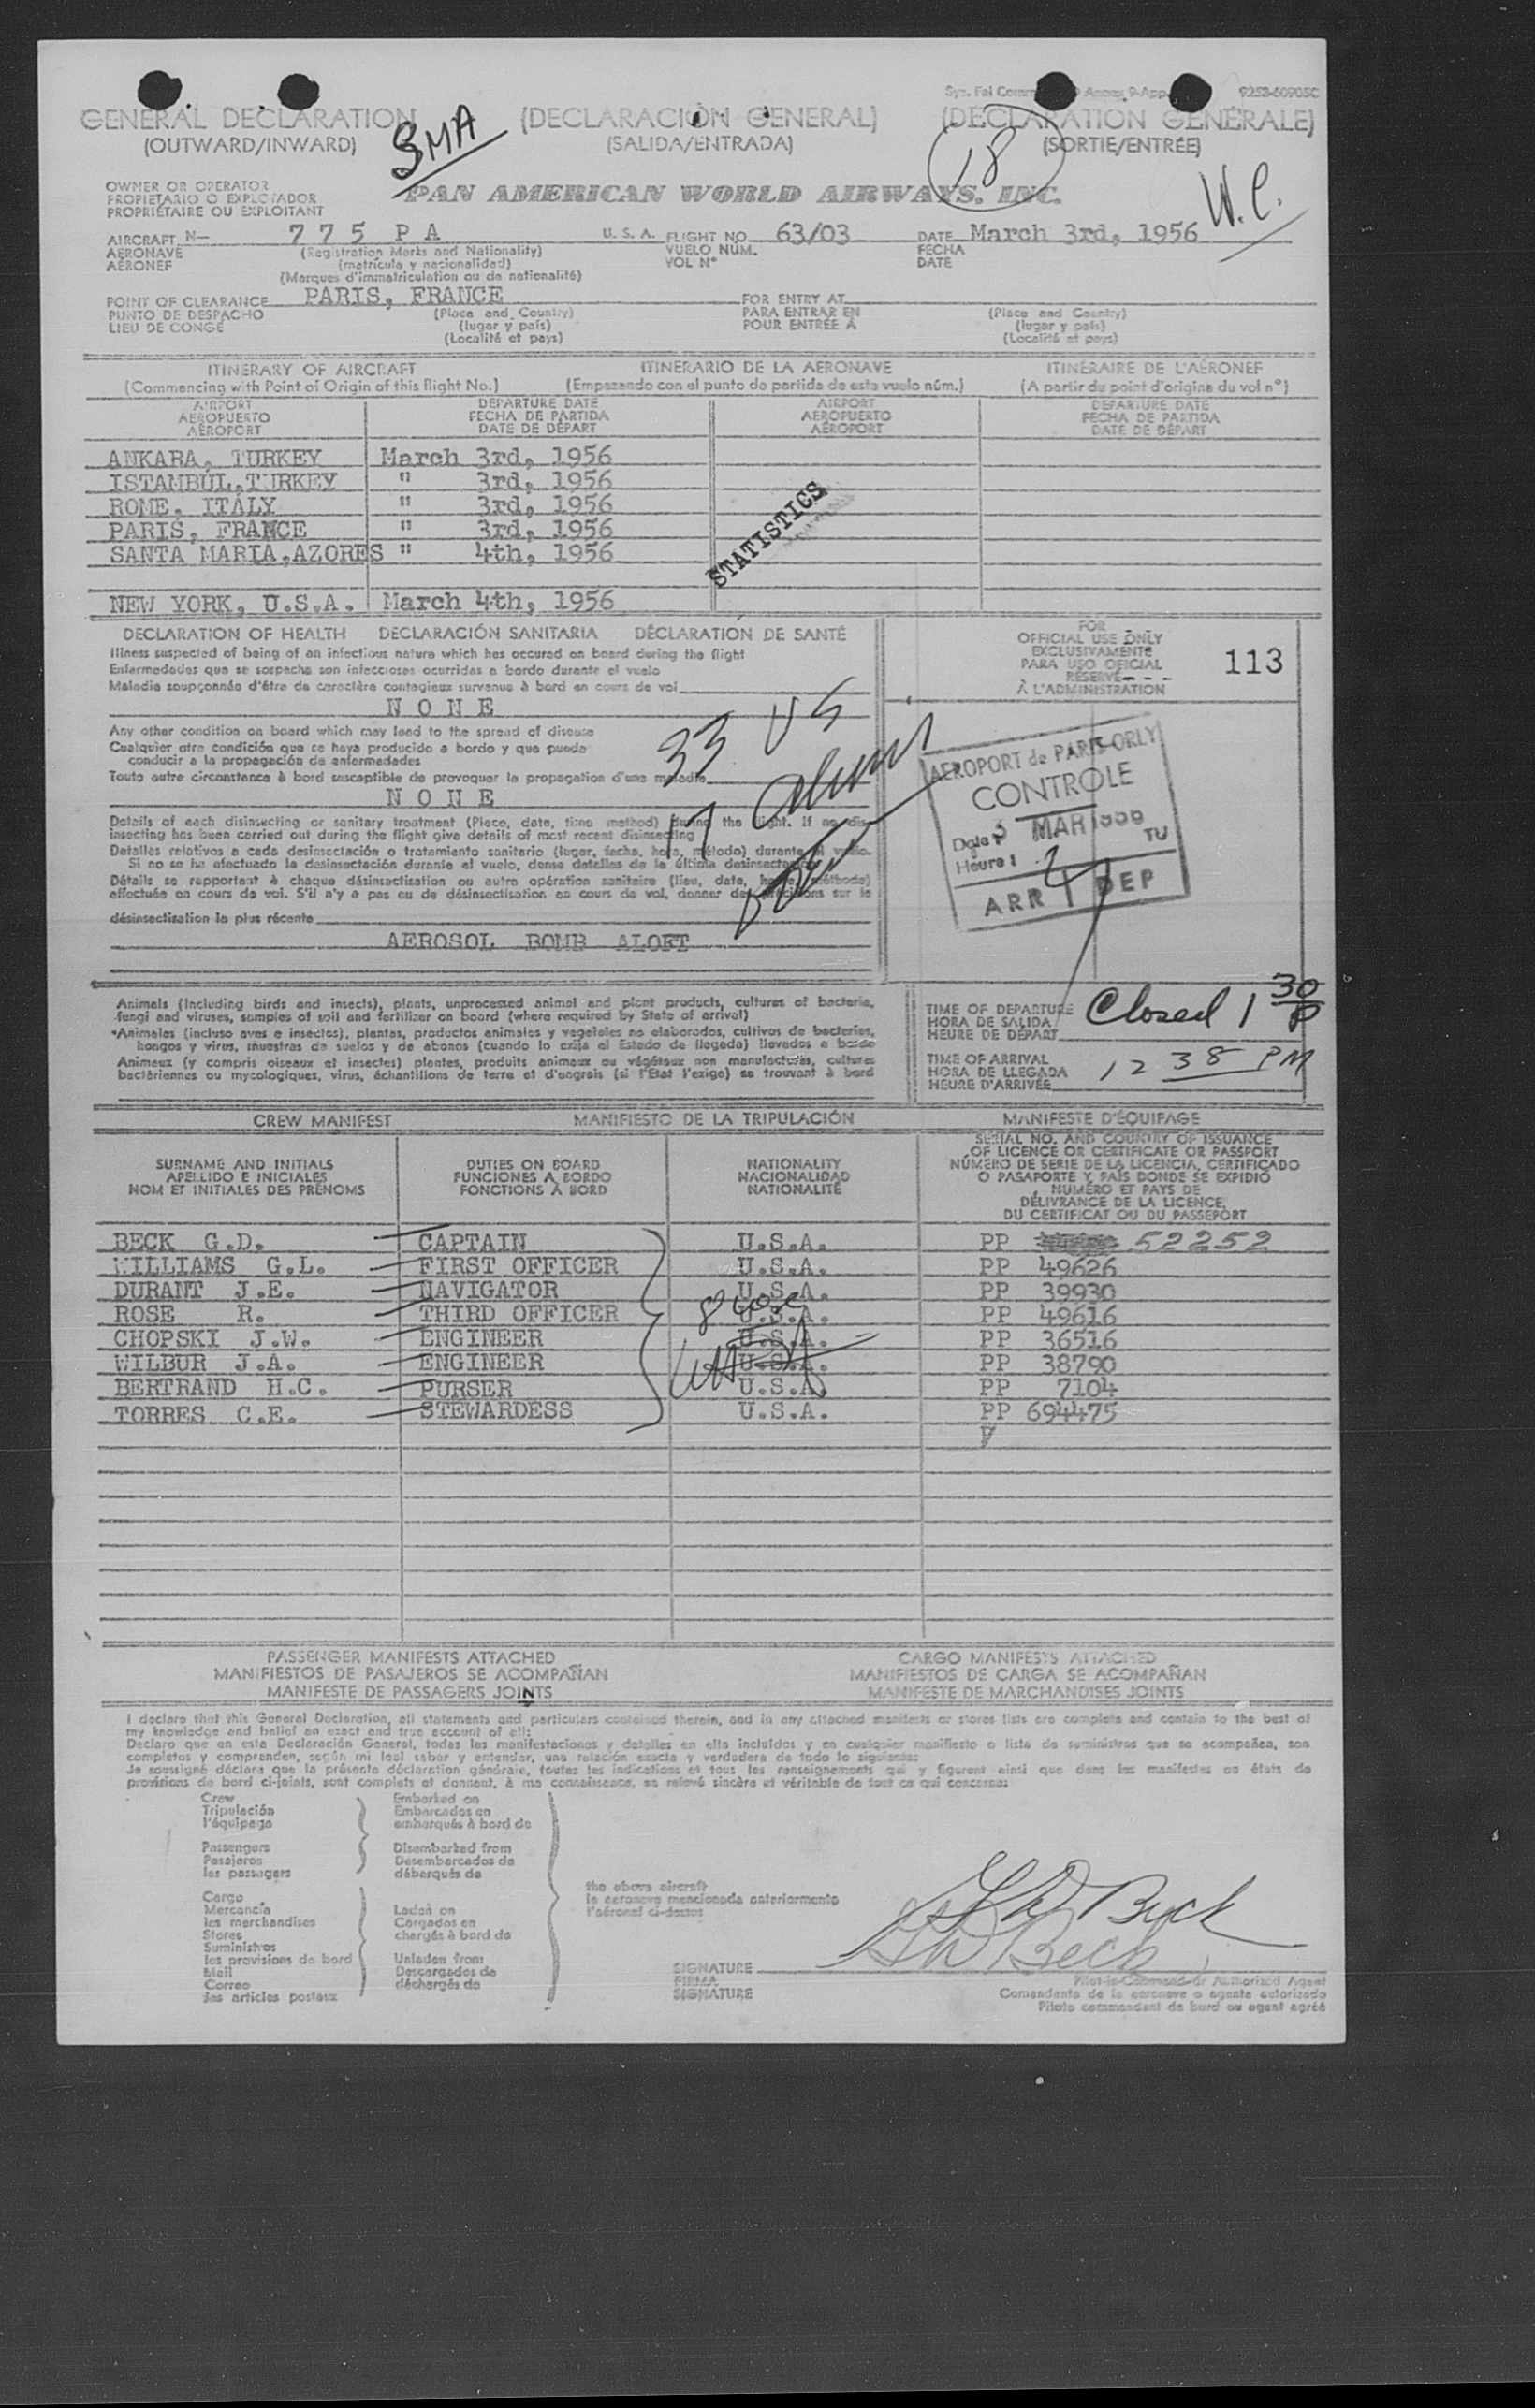 9252-60905C
GENERAL DECLARATION (DECLARACIÓN GENERAL) (DECLARATION GÉNÉRALE)
(OUTWARD/INWARD) (SALIDA/ENTRADA) (SORTIE/ENTRÉE)
SMA
18
W.C.
OWNER OR OPERATOR
PROPIETARIO O EXPLOTADOR
PROPRIÉTAIRE OU EXPLOITANT
PAN AMERICAN WORLD AIRWAYS. INC.
AIRCRAFT N- 775 PA U. S. A. FLIGHT NO. 63/03 DATE March 3rd, 1956
AERONAVE (Registration Marks and Nationality) VUELO NUM. FECHA
AÉRONEF (matrícula y nacionalidad) VOL N° DATE
(Marques d'immatriculation ou de nationalité)
POINT OF CLEARANCE PARIS, FRANCE FOR ENTRY AT
PUNTO DE DESPACHO (Place and Country) PARA ENTRAR EN (Place and Country)
LIEU DE CONGÉ (lugar y país) POUR ENTRÉE À (lugar y país)
(Localité et pays) (Localité et pays)
ITINERARY OF AIRCRAFT ITINERARIO DE LA AERONAVE ITINÉRAIRE DE L'AÉRONEF
(Commencing with Point of Origin of this flight No.) (Empezando con el punto de partida de este vuelo núm.) (A partir du point d'origine du vol n°)
AIRPORT DEPARTURE DATE AIRPORT DEPARTURE DATE
AEROPUERTO FECHA DE PARTIDA AEROPUERTO FECHA DE PARTIDA
AÉROPORT DATE DE DÉPART AÉROPORT DATE DE DÉPART
ANKARA, TURKEY March 3rd, 1956
ISTAMBUL, TURKEY " 3rd, 1956
ROME, ITALY " 3rd, 1956
PARIS, FRANCE " 3rd, 1956
SANTA MARIA, AZORES " 4th, 1956
NEW YORK, U.S.A. March 4th, 1956
STATISTICS
DECLARATION OF HEALTH DECLARACIÓN SANITARIA DÉCLARATION DE SANTÉ
Illness suspected of being of an infectious nature which has occured on board during the flight
Enfermedades que se sospecha son infecciosas ocurridas a bordo durante el vuelo
Maladie soupçonnée d'être de caractère contagieux survenue à bord en cours de vol
NONE
Any other condition on board which may lead to the spread of disease
Cualquier otra condición que se haya producido a bordo y que pueda
conducir a la propagación de enfermedades
Toute autre circonstance à bord susceptible de provoquer la propagation d'une maladie
NONE
33 US
17 Aliens
Details of each disinsecting or sanitary treatment (Place, date, time method) during the flight. If no dis-
insecting has been carried out during the flight give details of most recent disinsecting
Detalles relativos a cada desinsectación o tratamiento sanitario (lugar, fecha, hora, método) durante el vuelo.
Si no se ha efectuado la desinsectación durante el vuelo, dense detalles de la última desinsectación
Détails se rapportant à chaque désinsectisation ou autre opération sanitaire (lieu, date, heure, méthode)
effectuée en cours de vol. S'il n'y a pas eu de désinsectisation en cours de vol, donner des précisions sur la
désinsectisation la plus récente
AEROSOL BOMB ALOFT
FOR
OFFICIAL USE ONLY
EXCLUSIVAMENTE
PARA USO OFICIAL
RÉSERVÉ
À L'ADMINISTRATION
113
AEROPORT de PARIS-ORLY
CONTROLE
Date: 3 MAR 1956
Heure: TU
ARR DEP
Animals (Including birds and insects), plants, unprocessed animal and plant products, cultures of bacteria,
fungi and viruses, samples of soil and fertilizer on board (where required by State of arrival)
Animales (incluso aves e insectos), plantas, productos animales y vegetales no elaborados, cultivos de bacterias,
hongos y virus, muestras de suelos y de abonos (cuando lo exija el Estado de llegada) llevados a bordo
Animaux (y compris oiseaux et insectes) plantes, produits animaux ou végétaux non manufacturés, cultures
bactériennes ou mycologiques, virus, échantillons de terre et d'engrais (si l'État l'exige) se trouvant à bord
TIME OF DEPARTURE
HORA DE SALIDA
HEURE DE DÉPART
Closed 1 30 P
TIME OF ARRIVAL
HORA DE LLEGADA
HEURE D'ARRIVÉE
12 38 PM
CREW MANIFEST MANIFIESTO DE LA TRIPULACIÓN MANIFESTE D'ÉQUIPAGE
SURNAME AND INITIALS
APELLIDO E INICIALES
NOM ET INITIALES DES PRÉNOMS
DUTIES ON BOARD
FUNCIONES A BORDO
FONCTIONS À BORD
NATIONALITY
NACIONALIDAD
NATIONALITÉ
SERIAL NO. AND COUNTRY OF ISSUANCE
OF LICENCE OR CERTIFICATE OR PASSPORT
NÚMERO DE SERIE DE LA LICENCIA, CERTIFICADO
O PASAPORTE Y PAÍS DONDE SE EXPIDIÓ
NUMÉRO ET PAYS DE
DÉLIVRANCE DE LA LICENCE,
DU CERTIFICAT OU DU PASSEPORT
BECK G.D. CAPTAIN U.S.A. PP 52252
WILLIAMS G.L. FIRST OFFICER U.S.A. PP 49626
DURANT J.E. NAVIGATOR U.S.A. PP 39930
ROSE R. THIRD OFFICER U.S.A. PP 49616
CHOPSKI J.W. ENGINEER U.S.A. PP 36516
WILBUR J.A. ENGINEER U.S.A. PP 38790
BERTRAND H.C. PURSER U.S.A. PP 7104
TORRES C.E. STEWARDESS U.S.A. PP 694475
PASSENGER MANIFESTS ATTACHED CARGO MANIFESTS ATTACHED
MANIFIESTOS DE PASAJEROS SE ACOMPAÑAN MANIFIESTOS DE CARGA SE ACOMPAÑAN
MANIFESTE DE PASSAGERS JOINTS MANIFESTE DE MARCHANDISES JOINTS
I declare that this General Declaration, all statements and particulars contained therein, and in any attached manifests or stores lists are complete and contain to the best of
my knowledge and belief an exact and true account of all:
Declaro que en esta Declaración General, todas las manifestaciones y detalles en ella incluidos y en cualquier manifiesto o lista de suministros que se acompañen, son
completos y comprenden, según mi leal saber y entender, una relación exacta y verdadera de todo lo siguiente:
Je soussigné déclare que la présente déclaration générale, toutes les indications et tous les renseignements qui y figurent ainsi que dans les manifestes ou états de
provisions de bord ci-joints, sont complets et donnent, à ma connaissance, un relevé sincère et véritable de tout ce qui concerne:
Crew
Tripulación
l'équipage
Passengers
Pasajeros
les passagers
Cargo
Mercancía
les marchandises
Stores
Suministros
les provisions de bord
Mail
Correo
les articles postaux
Embarked on
Embarcados en
embarqués à bord de
Disembarked from
Desembarcados de
débarqués de
Laden on
Cargados en
chargés à bord de
Unladen from
Descargados de
déchargés de
the above aircraft
la aeronave mencionada anteriormente
l'aéronef ci-dessus
G D Beck
G D Beck
SIGNATURE
FIRMA
SIGNATURE
Pilot-in-Command or Authorized Agent
Comandante de la aeronave o agente autorizado
Pilote commandant de bord ou agent agréé